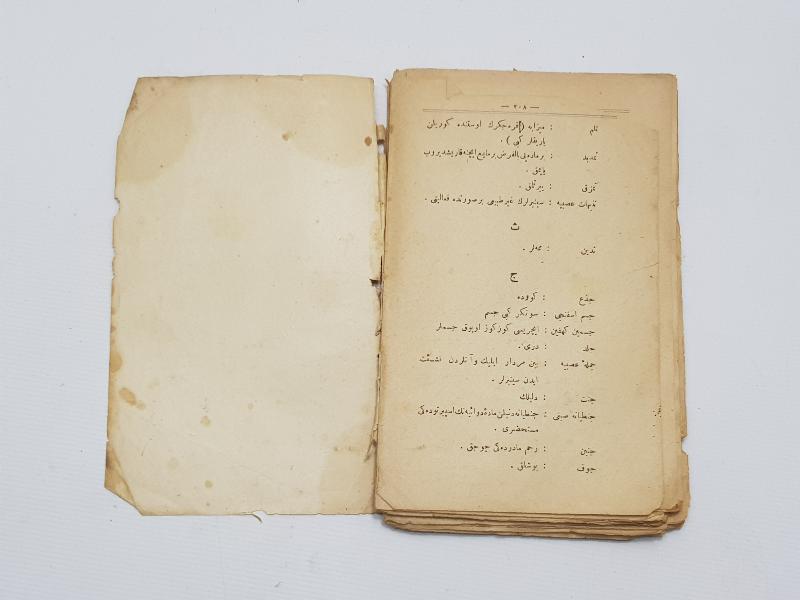 — ٣٠٨ —
ثلم : ميزابه (قره جكرك اوستنده كوريلن
ياريقلر كبى) .
تمديد : بر ماده يى بالفرض بر مايع ايچنه قاريشديروب
يايمق .
تمزق : ييرتلق .
تنبهات عصبيه : سينيرلرك غيرطبيعى بر صورتده فعاليتى .
ث
ثدين : ممه لر .
ج
جذع : كووده
جسم اسفنجى : سونكر كبى جسم
جسمين كهفين : ايچريسى كوزكوز اويوق جسملر
جلد : درى .
جملهٔ عصبيه : بين مردار ايليك وآنلردن نشئت
ايدن سينيرلر .
جنت : دليلك
جنطيانه صبغى : جنطيانه دنيلن مادهٔ دوائيه نك اسپيرتوده كى
مستحضرى .
جنين : رحم مادرده كى چوجق .
جوف : بوشلق .